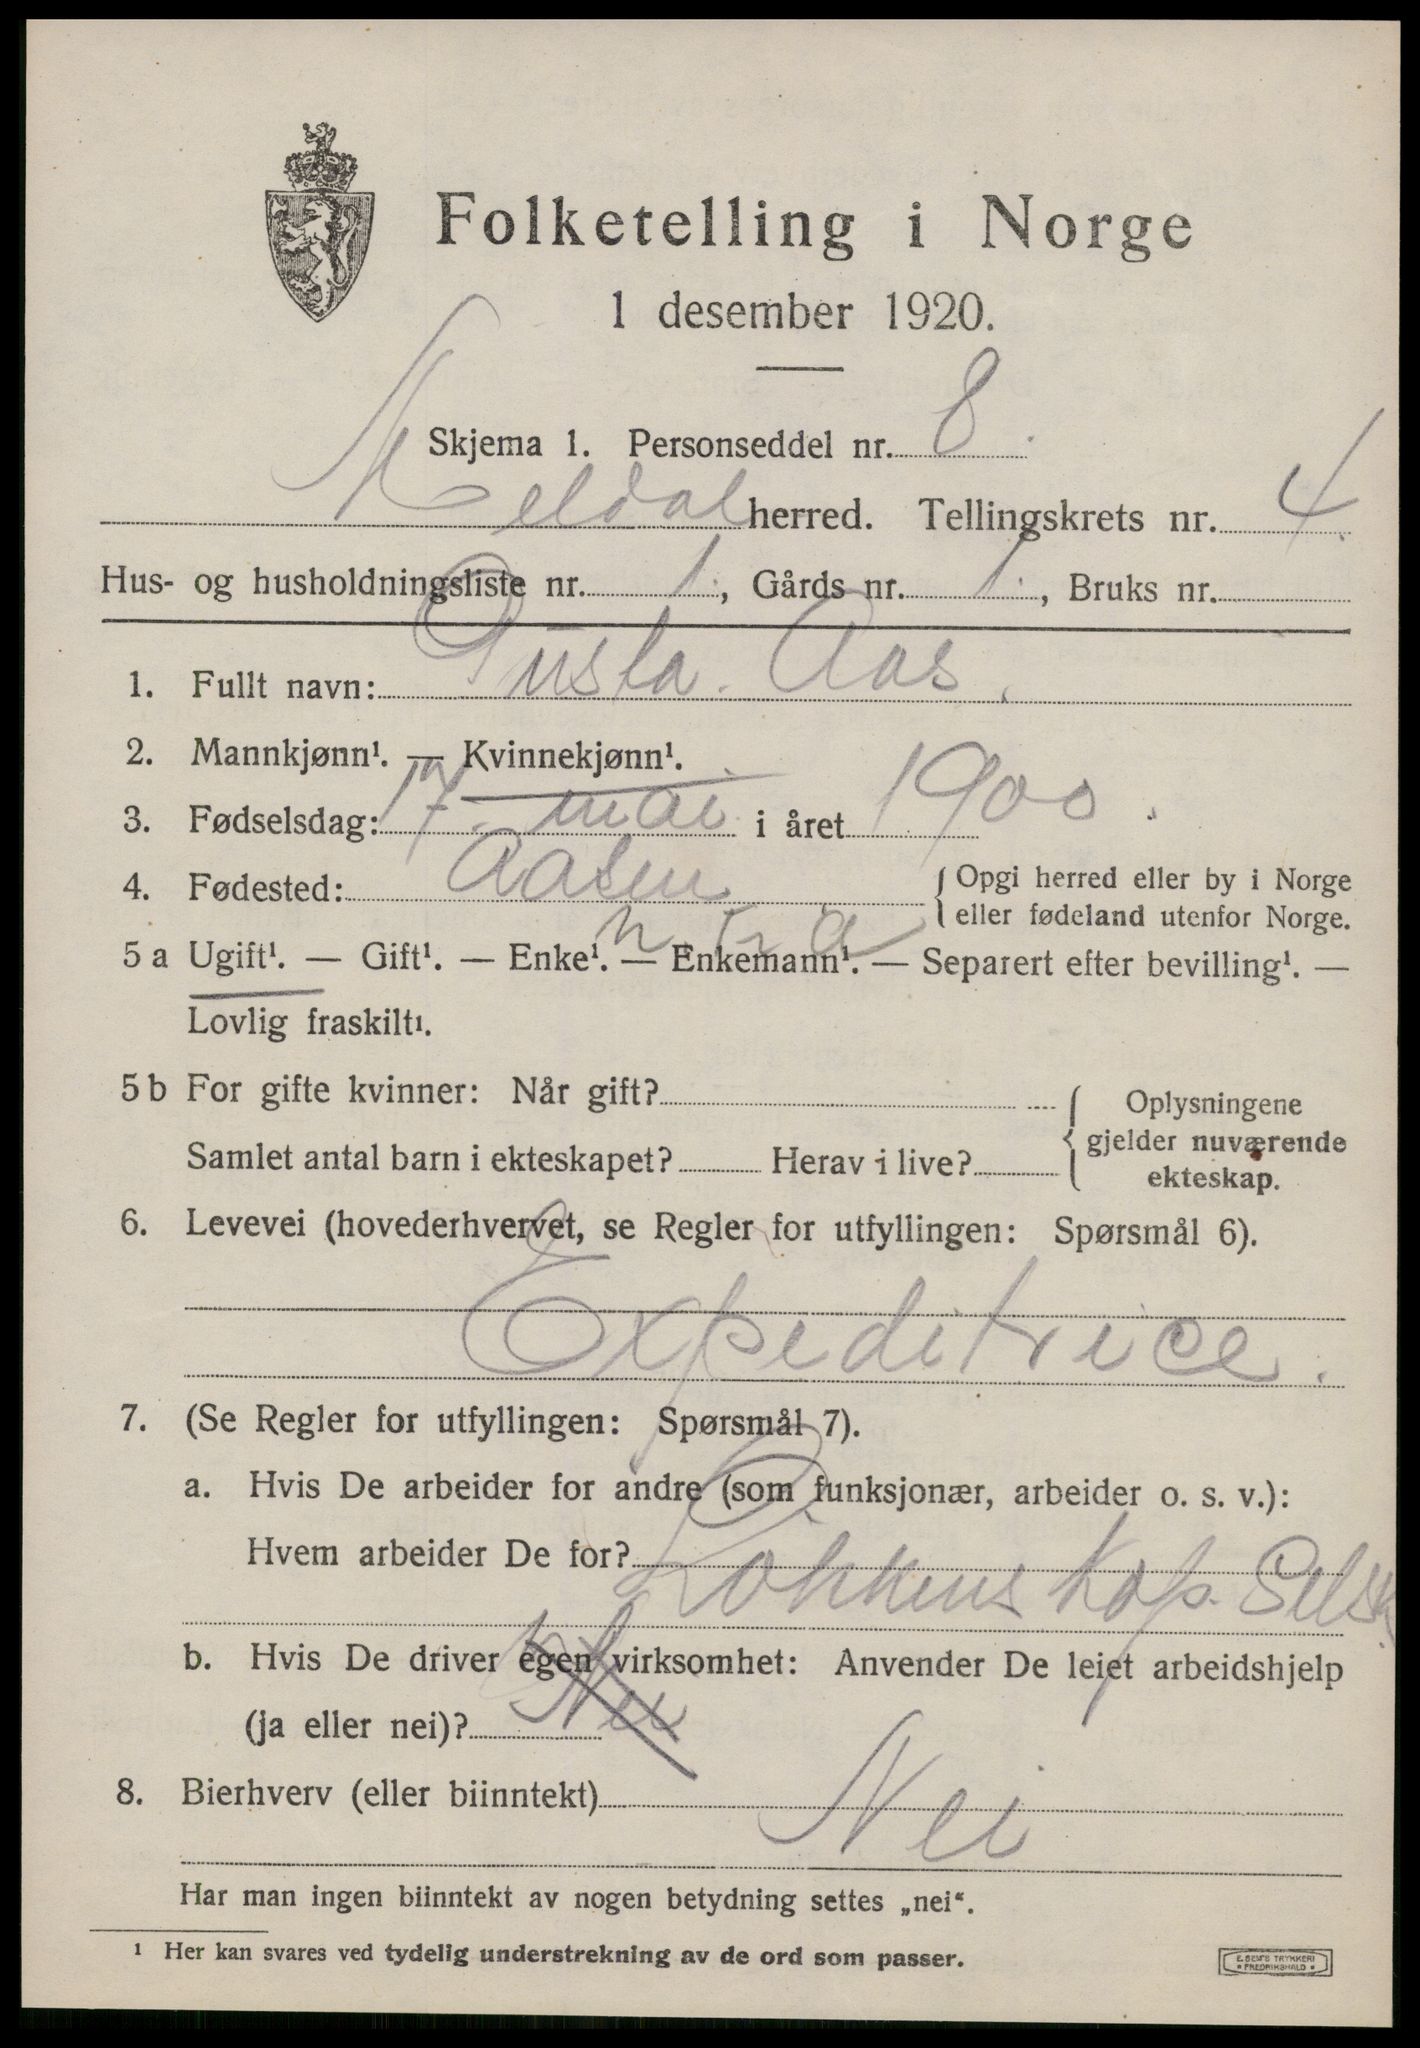 Folketelling i Norge
1 desember 1920.
Skjema 1. Personseddel nr. 8.
Meldal herred. Tellingskrets nr. 4.
Hus- og husholdningsliste nr. 1., Gårds nr. 1., Bruks nr.
1. Fullt navn: Aas.
2. Mannkjønn¹. — Kvinnekjønn¹.
3. Fødselsdag: 17. mai i året 1900.
4. Fødested: Aasen { Opgi herred eller by i Norge
eller fødeland utenfor Norge.
5 a Ugift¹. — Gift¹. — Enke¹. — Enkemann¹. — Separert efter bevilling¹. —
Lovlig fraskilt¹.
5 b For gifte kvinner: Når gift? { Oplysningene
gjelder nuværende
ekteskap.
Samlet antal barn i ekteskapet? Herav i live?
6. Levevei (hovederhvervet, se Regler for utfyllingen: Spørsmål 6).
Expeditrice.
7. (Se Regler for utfyllingen: Spørsmål 7).
a. Hvis De arbeider for andre (som funksjonær, arbeider o. s. v.):
Hvem arbeider De for? Løkkens Kop. Selsk.
b. Hvis De driver egen virksomhet: Anvender De leiet arbeidshjelp
(ja eller nei)? Nei
8. Bierhverv (eller biinntekt) Nei
Har man ingen biinntekt av nogen betydning settes „nei“.
¹ Her kan svares ved tydelig understrekning av de ord som passer.
E. SEM'S TRYKKERI
• FREDRIKSHALD •